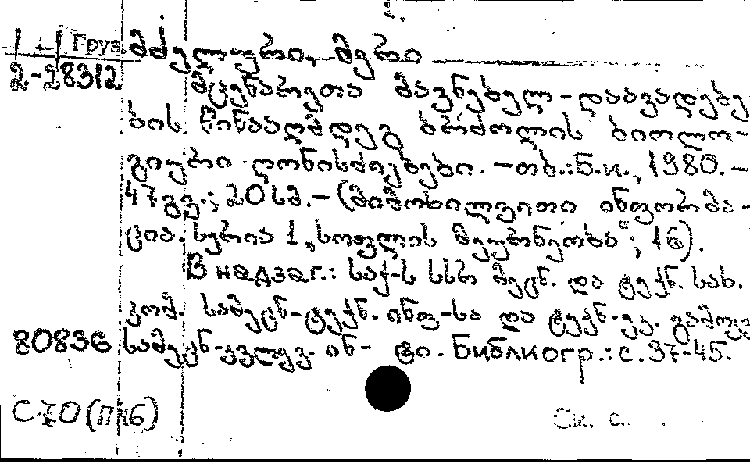 Груз. მძელური, მერი
2-28312
მცენარეთა მავნებელ-დაავადებე-
ბის წინააღმდეგ ბრძოლის ბიოლო-
გიური ღონისძიებები. - თბ.: Б.и., 1980. -
47 გვ.; 20 სმ. - (მიმოხილვითი ინფორმა-
ცია. სერია 1, „სოფლის მეურნეობა"; 16).
В надзаг.: საქ-ს სსრ მეცნ. და ტექნ. სახ.
კომ. სამეცნ-ტექნ. ინფ-სა და ტექნ-ეკ. გამოკვ
80836 სამეცნ-კვლევ. ინ-ტი. Библиогр.: с. 37-45.
С.70(П116) См. с.